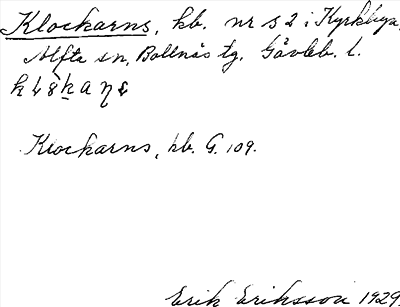 Klockarns, hb. nr s 2 i Kyrkbyn,
Alfta sn, Bollnäs tg, Gävleb. l.
Klockarns, hb. G. 109.
Erik Eriksson 1929.